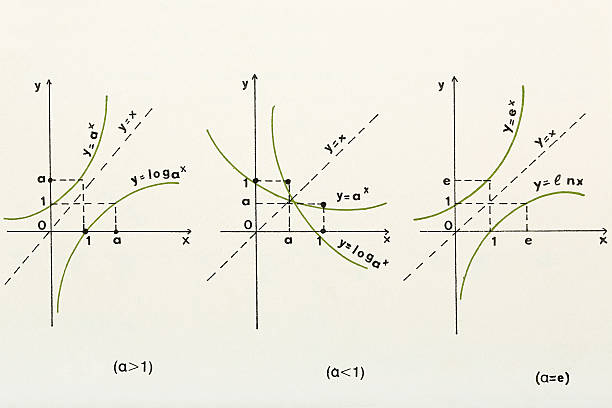 y
y=aˣ
y=x
a
y=logaˣ
1
0
1
a
x
(a>1)
y
y=x
1
a
y=aˣ
0
a
1
x
y=logaˣ
(a<1)
y
y=eˣ
y=x
e
y=ℓnx
1
0
1
e
x
(a=e)